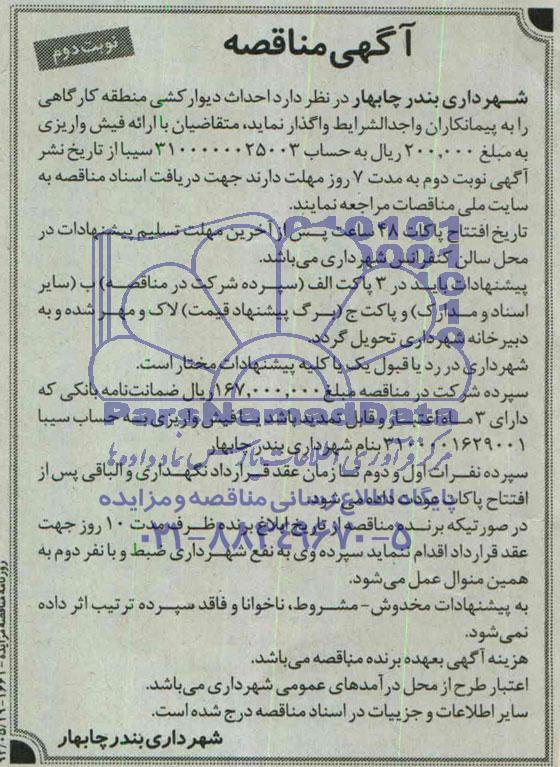 آگهی مناقصه
نوبت دوم
شهرداری بندر چابهار در نظر دارد احداث دیوارکشی منطقه کارگاهی
را به پیمانکاران واجدالشرایط واگذار نماید، متقاضیان با ارائه فیش واریزی
به مبلغ ۲۰۰,۰۰۰ ریال به حساب ۳۱۰۰۰۰۰۰۲۵۰۰۳ سیبا از تاریخ نشر
آگهی نوبت دوم به مدت ۷ روز مهلت دارند جهت دریافت اسناد مناقصه به
سایت ملی مناقصات مراجعه نمایند.
تاریخ افتتاح پاکات ۴۸ ساعت پس از آخرین مهلت تسلیم پیشنهادات در
محل سالن کنفرانس شهرداری می‌باشد.
پیشنهادات باید در ۳ پاکت الف (سپرده شرکت در مناقصه) ب (سایر
اسناد و مدارک) و پاکت ج (برگ پیشنهاد قیمت) لاک و مهر شده و به
دبیرخانه شهرداری تحویل گردد.
شهرداری در رد یا قبول یک یا کلیه پیشنهادات مختار است.
سپرده شرکت در مناقصه مبلغ ۱۶۷,۰۰۰,۰۰۰ ریال ضمانت‌نامه بانکی که
دارای ۳ ماه اعتبار و قابل تمدید باشد یا فیش واریزی به حساب سیبا
بنام شهرداری بندر چابهار
سپرده نفرات اول و دوم تا زمان عقد قرارداد نگهداری و الباقی پس از
افتتاح پاکات عودت داده می‌شود.
در صورتیکه برنده مناقصه از تاریخ ابلاغ برنده ظرف مدت ۱۰ روز جهت
عقد قرارداد اقدام ننماید سپرده وی به نفع شهرداری ضبط و با نفر دوم به
همین منوال عمل می‌شود.
به پیشنهادات مخدوش - مشروط، ناخوانا و فاقد سپرده ترتیب اثر داده
نمی‌شود.
هزینه آگهی بعهده برنده مناقصه می‌باشد.
اعتبار طرح از محل درآمدهای عمومی شهرداری می‌باشد.
سایر اطلاعات و جزییات در اسناد مناقصه درج شده است.
شهرداری بندر چابهار
ParsNamadData
مرکز فرآوری اطلاعات پارس نماد داده‌ها
پایگاه اطلاع رسانی مناقصه و مزایده
۰۲۱-۸۸۳۴۹۶۷۰-۵